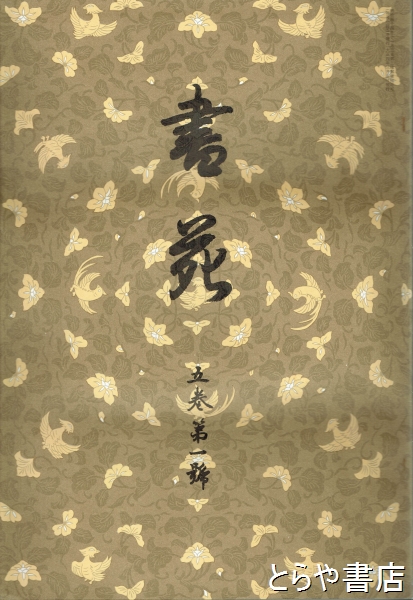 書苑
五卷第一號
とらや書店